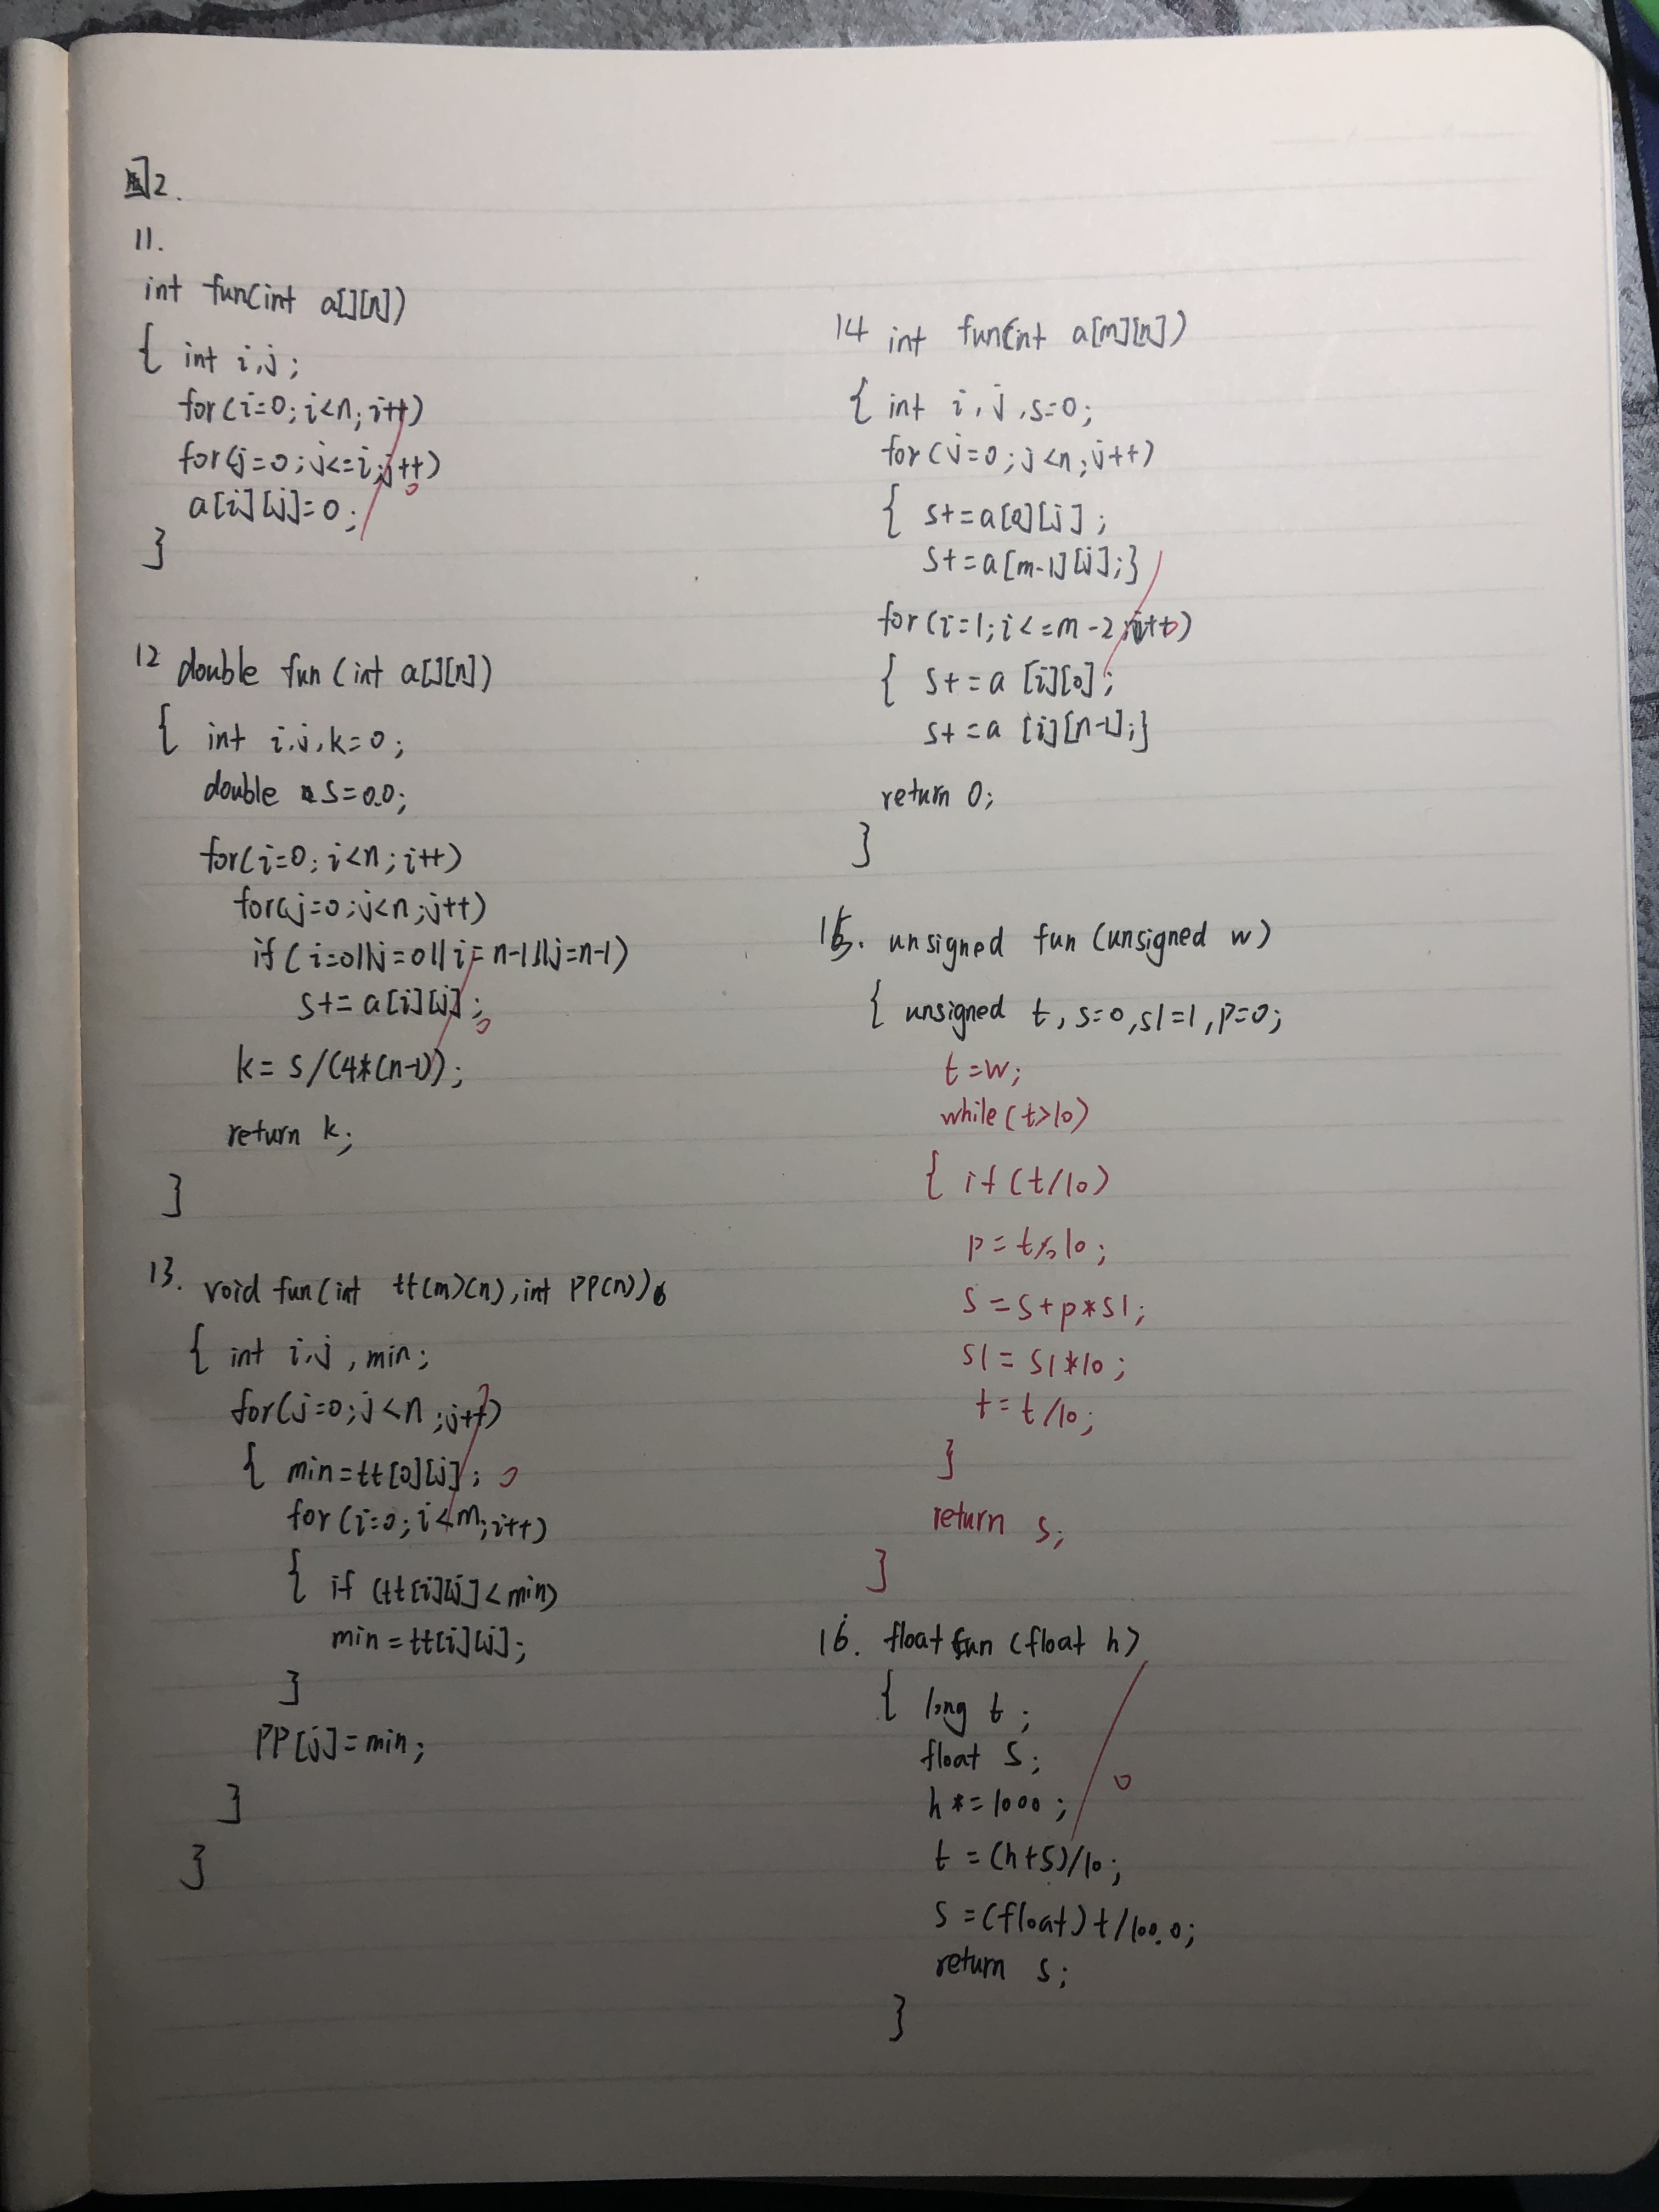 2.
11.
int fun(int a[][n])
{ int i,j;
for(i=0;i<n;i++)
for(j=0;j<=i;j++)
a[i][j]=0;
}
12 double fun (int a[][n])
{ int i,j,k=0;
double s=0.0;
for(i=0;i<n;i++)
for(j=0;j<n;j++)
if(i=0||j=0||i=n-1||j=n-1)
s+=a[i][j];
k=s/(4*(n-1));
return k;
}
13. void fun(int tt(m)(n),int PP(n))
{ int i,j,min;
for(j=0;j<n;j++)
{ min=tt[0][j];
for(i=0;i<m;i++)
{ if (tt[i][j]<min)
min=tt[i][j];
}
PP[j]=min;
}
}
14 int fun(int a[m][n])
{ int i,j,s=0;
for(j=0;j<n;j++)
{ s+=a[0][j];
s+=a[m-1][j];}
for(i=1;i<=m-2;i++)
{ s+=a[i][0];
s+=a[i][n-1];}
return 0;
}
15. unsigned fun (unsigned w)
{ unsigned t,s=0,s1=1,p=0;
t=w;
while(t>10)
{ if(t/10)
p=t%10;
s=s+p*s1;
s1=s1*10;
t=t/10;
}
return s;
}
16. float fun (float h)
{ long t;
float s;
h*=1000;
t=(h+5)/10;
s=(float)t/100.0;
return s;
}